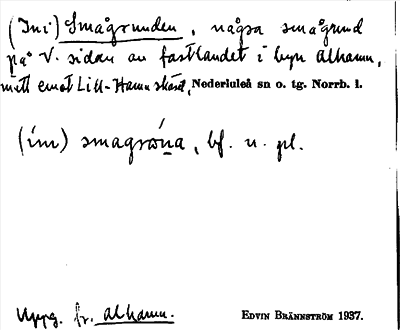 (Ini) Smågrunden, några smågrund
på V. sidan av fastlandet i byn Alhamn,
mitt emot Lill-Hamnskäret, Nederluleå sn o. tg. Norrb. l.
(ini) smagrona, bf. n. pl.
Uppg. fr. Alhamn. EDVIN BRÄNNSTRÖM 1937.